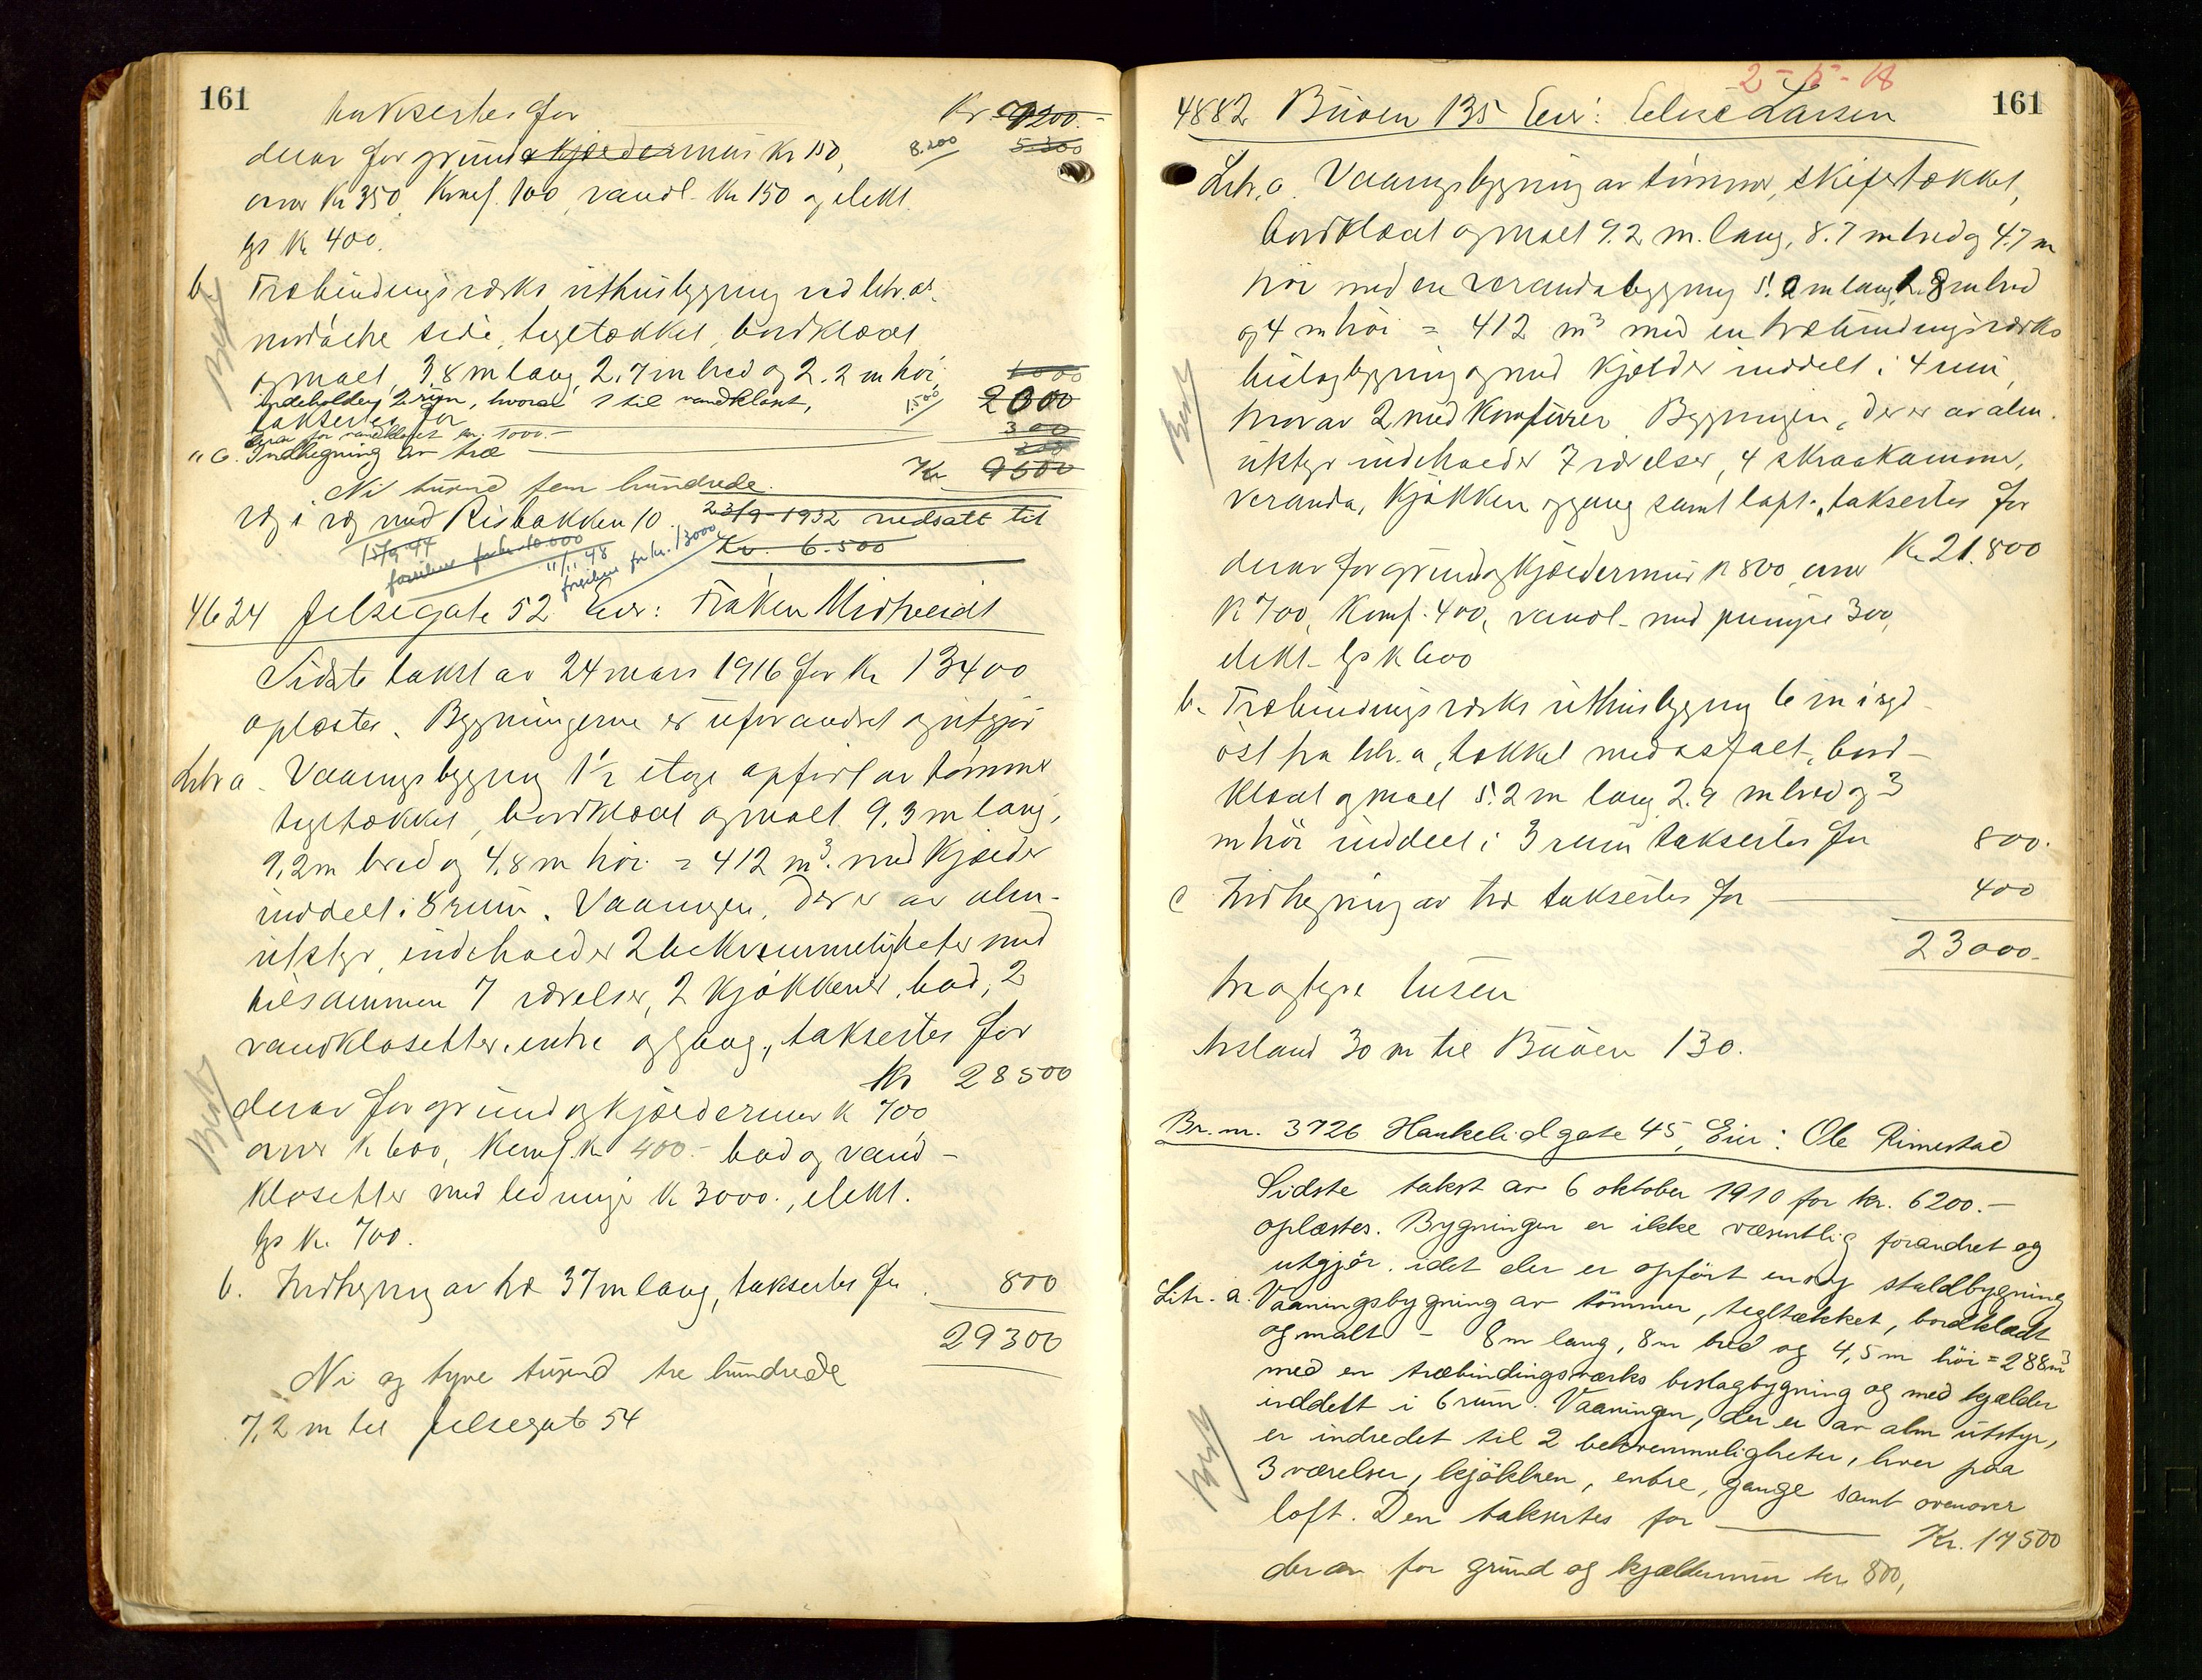 161
taksertes for Kr 7200.-
derav for grund & kjældermur Kr 150, 8.200 5300
ovner Kr 350, Komf. 100, vandl. Kr 150 og elekt.
lys Kr 400.
b. Træbindingsværks uthusbygning ved litr. a's
nordøstre side, tegltækket, bordklædt
og malt, 3.8 m lang, 2.7 m bred og 2.2 m høi, 1000
indeholder 2 rum, hvorav 1 til vandkloset, 1.500 2000
taksertes for 300
derav for vandklosett kr. 1000.-
" c. Indhegning av træ 200
Kr. 9500
Ni tusind fem hundrede.
væg i væg med Risbakken 10. 23/9-1932 nedsatt til
Kr. 6.500
15/9-44
forsikres for kr. 10.000
11/11 48
forsikres for kr. 13000
4624 Jelsegate 52 Eier: Frøken Midtveidt
Sidste takst av 24 mars 1916 for Kr 13400
oplæstes. Bygningerne er uforandret og utgjør
Litr a. Vaaningsbygning 1½ etage opført av tømmer
tegltækket, bordklædt og malt 9.3 m lang,
9,2 m bred og 4,8 m høi = 412 m³ med kjælder
inddelt i 8 rum. Vaaningen, der er av alm.
utstyr, indeholder 2 bekvemmeligheter med
tilsammen 7 værelser, 2 kjøkkener, bad, 2
vandklosetter, entre og gang, taksertes for
Kr 28500
derav for grund og kjældermur K 700
ovner K 600, Komf. K 400.- bad og vand-
klosetter med ledninger K 3000., elekt.
lys K. 700.
b. Indhegning av træ 37 m lang, taksertes for 800
29300
Ni og tyve tusind tre hundrede
7,2 m til Jelsegate 54
2-5-18
161
4882 Buøen 135 Eier: Eline Larsen
Litr. a. Vaaningsbygning av tømmer, skifertækket,
bordklædt og malt 9.2 m. lang, 8.7 m bred og 4.7 m
høi med en verandabygning 5.2 m lang, 1.8 m bred
og 4 m høi = 412 m³ med en træbindingsværks
bislagbygning og med kjælder inddelt i 4 rum,
hvorav 2 med komfurer. Bygningen, der er av alm.
utstyr indeholder 7 værelser, 4 skraakammer,
veranda, kjøkken og gang samt loft, taksertes for
Kr 21.800
derav for grund og kjældermur K 800, ovner
K 700, Komf. 400, vandl. med pumpe 300,
elekt. lys K 600
b. Træbindingsværks uthusbygning 6 m i syd-
øst fra litr. a, tækket med asfalt, bord-
klædt og malt 5.2 m lang, 2.9 m bred og 3
m høi inddelt i 3 rum taksertes for 800.
c Indhegning av træ taksertes for 400
23000.
tre og tyve tusen
Avstand 30 m til Buøen 130.
Br. nr. 3726 Haukelidgate 45, Eier: Ole Rimestad
Sidste takst av 6 oktober 1910 for kr. 6200.-
oplæstes. Bygningen er ikke væsentlig forandret og
utgjør. idet der er opført en ny staldbygning
Litr. a. Vaaningsbygning av tømmer, tegltækket, bordklædt
og malt - 8 m lang, 8 m bred og 4,5 m høi = 288 m³
med en træbindingsværks bislagbygning og med kjælder
inddelt i 6 rum. Vaaningen, der er av alm utstyr,
er indredet til 2 bekvemmeligheter, hver paa
3 værelser, kjøkken, entre, gange samt ovenover
loft. Den taksertes for Kr. 17500
derav for grund og kjældermur kr 800,